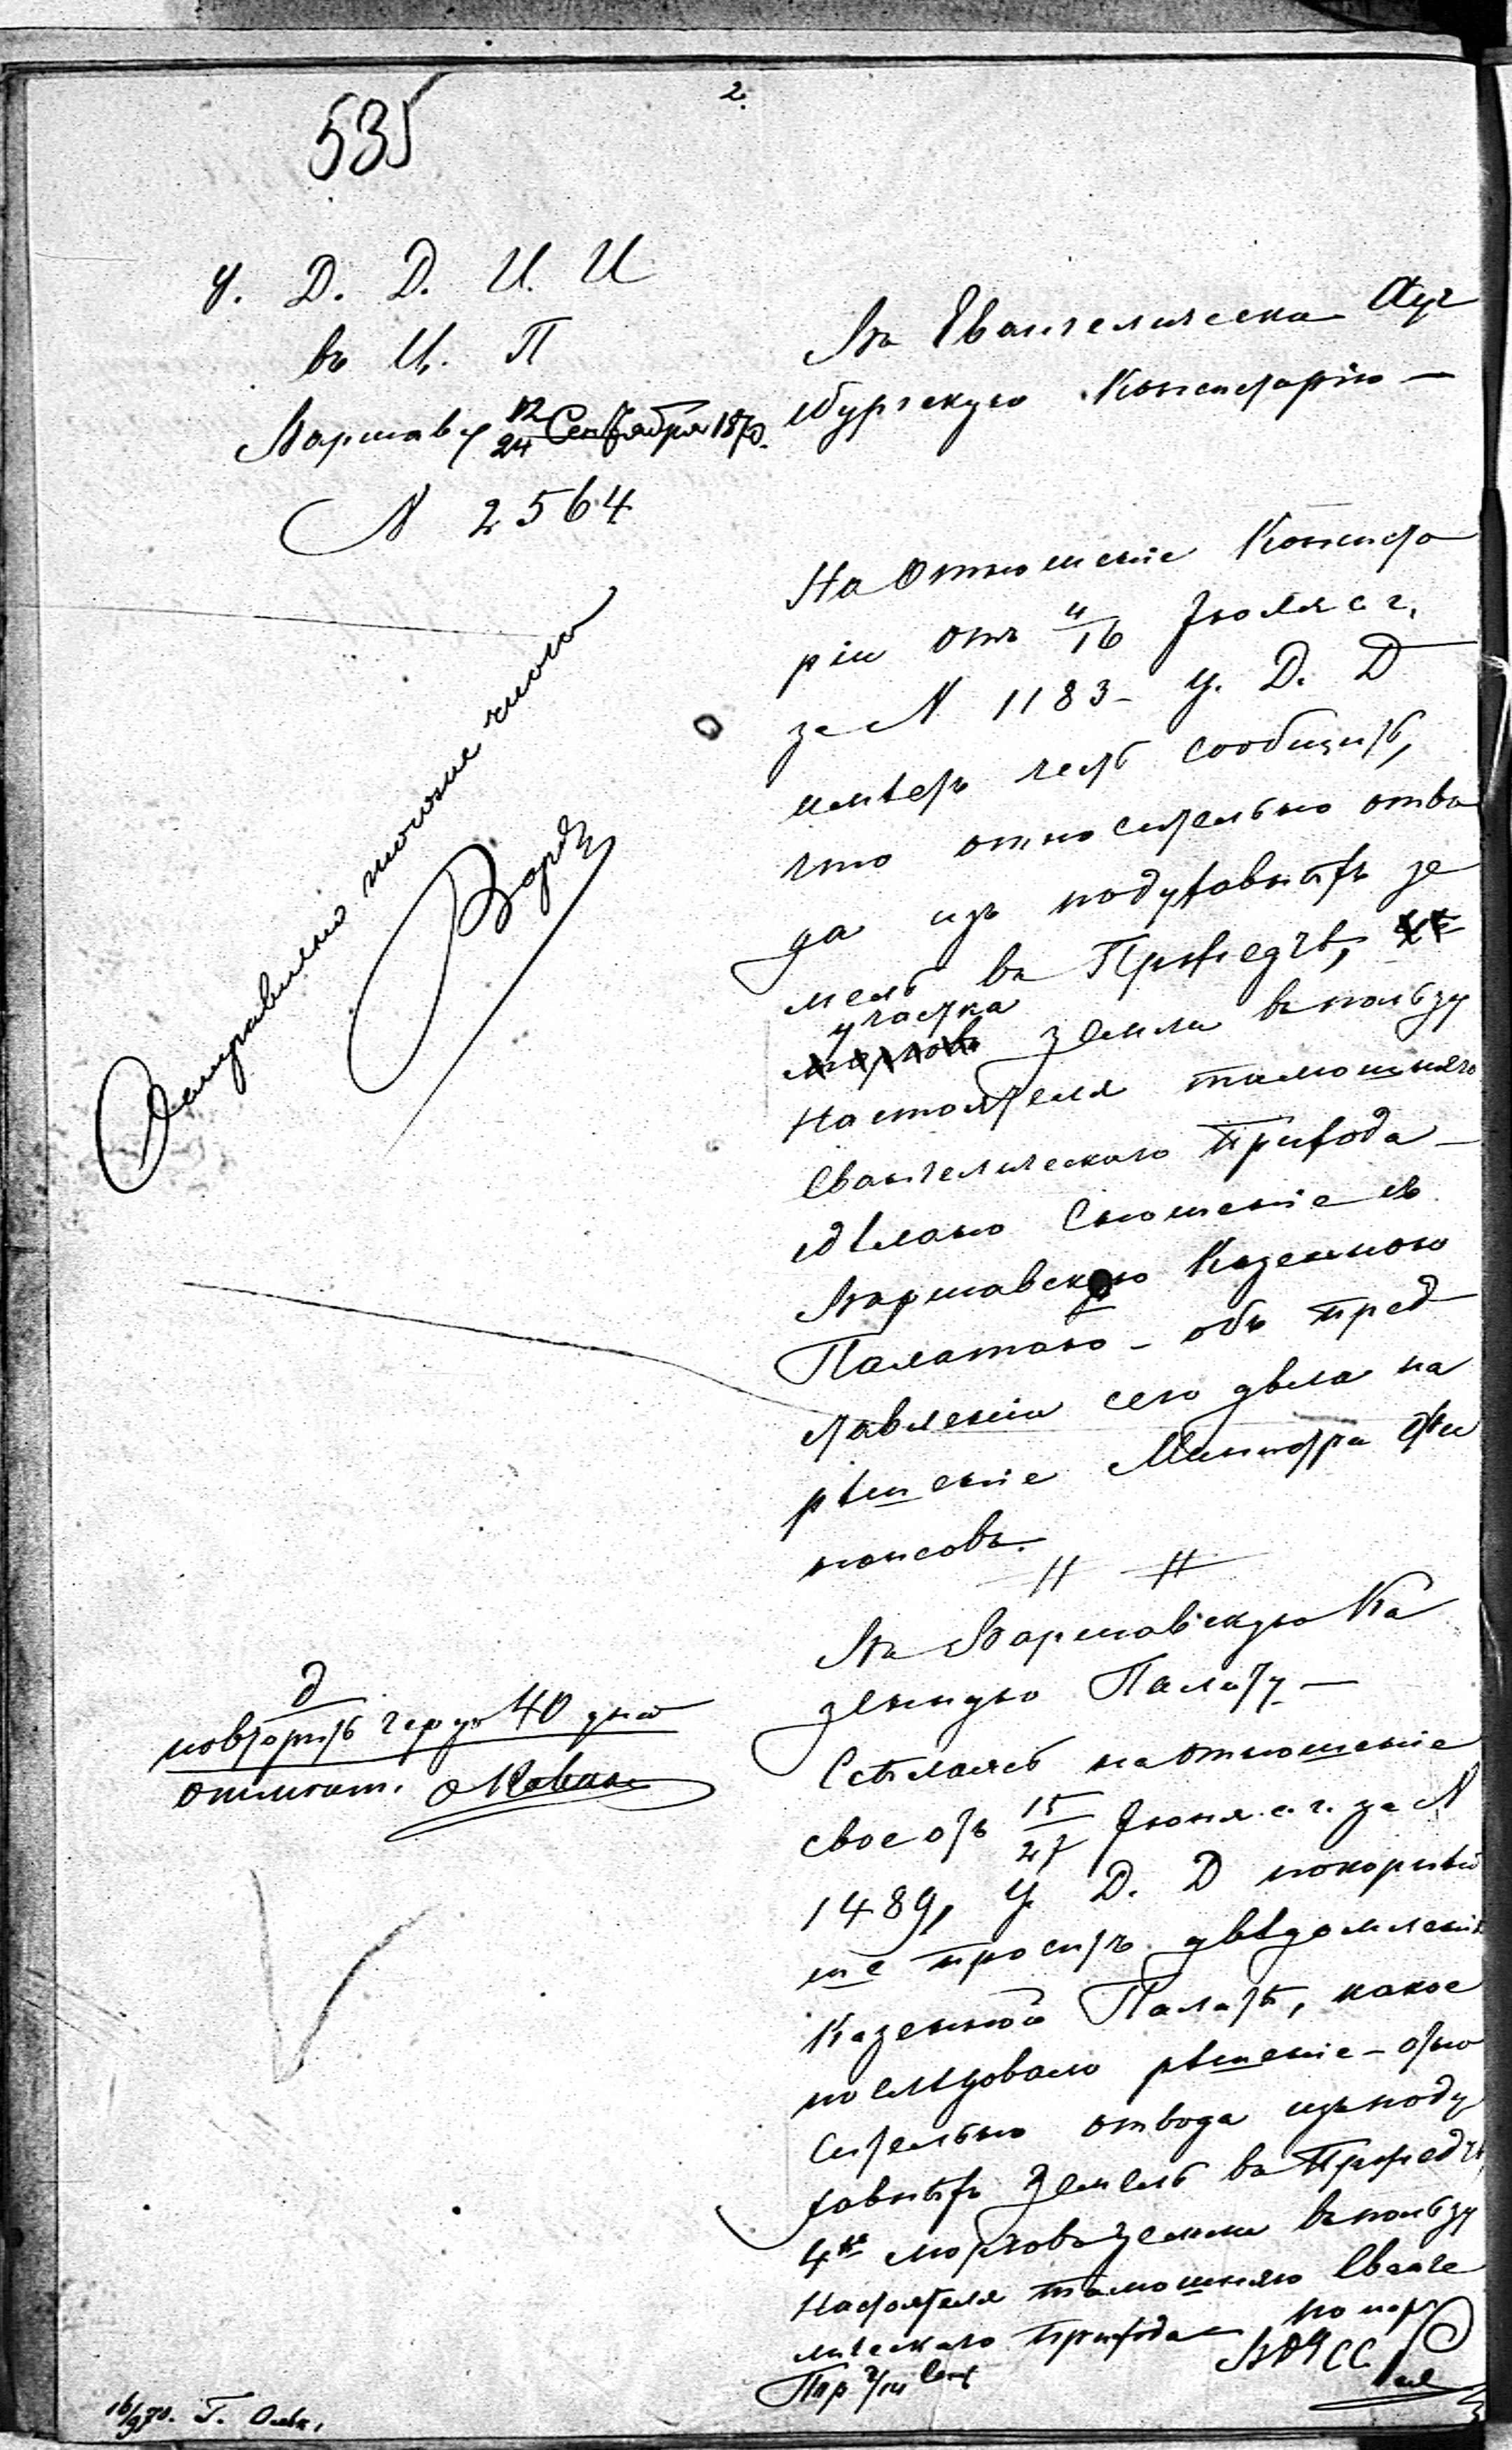 2.
535
У. Д. Д. И. И
въ Ц. П
Варшава 12/24 Сентября 1870.
N 2564
Въ Евангелическо Ауг
сбургскую Консисторію —
На Отношеніе Консисто
ріи отъ 4/16 Іюля с. г.
за N 1183 - У. Д. Д
имѣетъ честь сообщить,
что относительно отво
да изъ подуховныхъ зе
мель въ
участка
земли въ пользу
Настоятеля тамошняго
Евангелическаго Прихода —
сдѣлано Сношеніе съ
Варшавскою Казенною
Палатою - объ пред
ставленіи сего дѣла на
рѣшеніе Министра Фи
нансовъ.
Въ Варшавскую Ка
зенную Палату —
Ссылаясь на отношеніе
свое отъ 15/27 Іюня с. г. за N
1489, У. Д. Д покорнѣй
ше проситъ увѣдомленія
Казенной Палаты, какое
послѣдовало рѣшеніе - отно
сительно отвода изъ поду
ховныхъ земель въ
4хъ морговъ земли въ пользу
Настоятеля тамошняго Еванге
лическаго прихода
Отправлено
повторить черезъ 40 дней
отмѣтит.
16/9 70. Г.